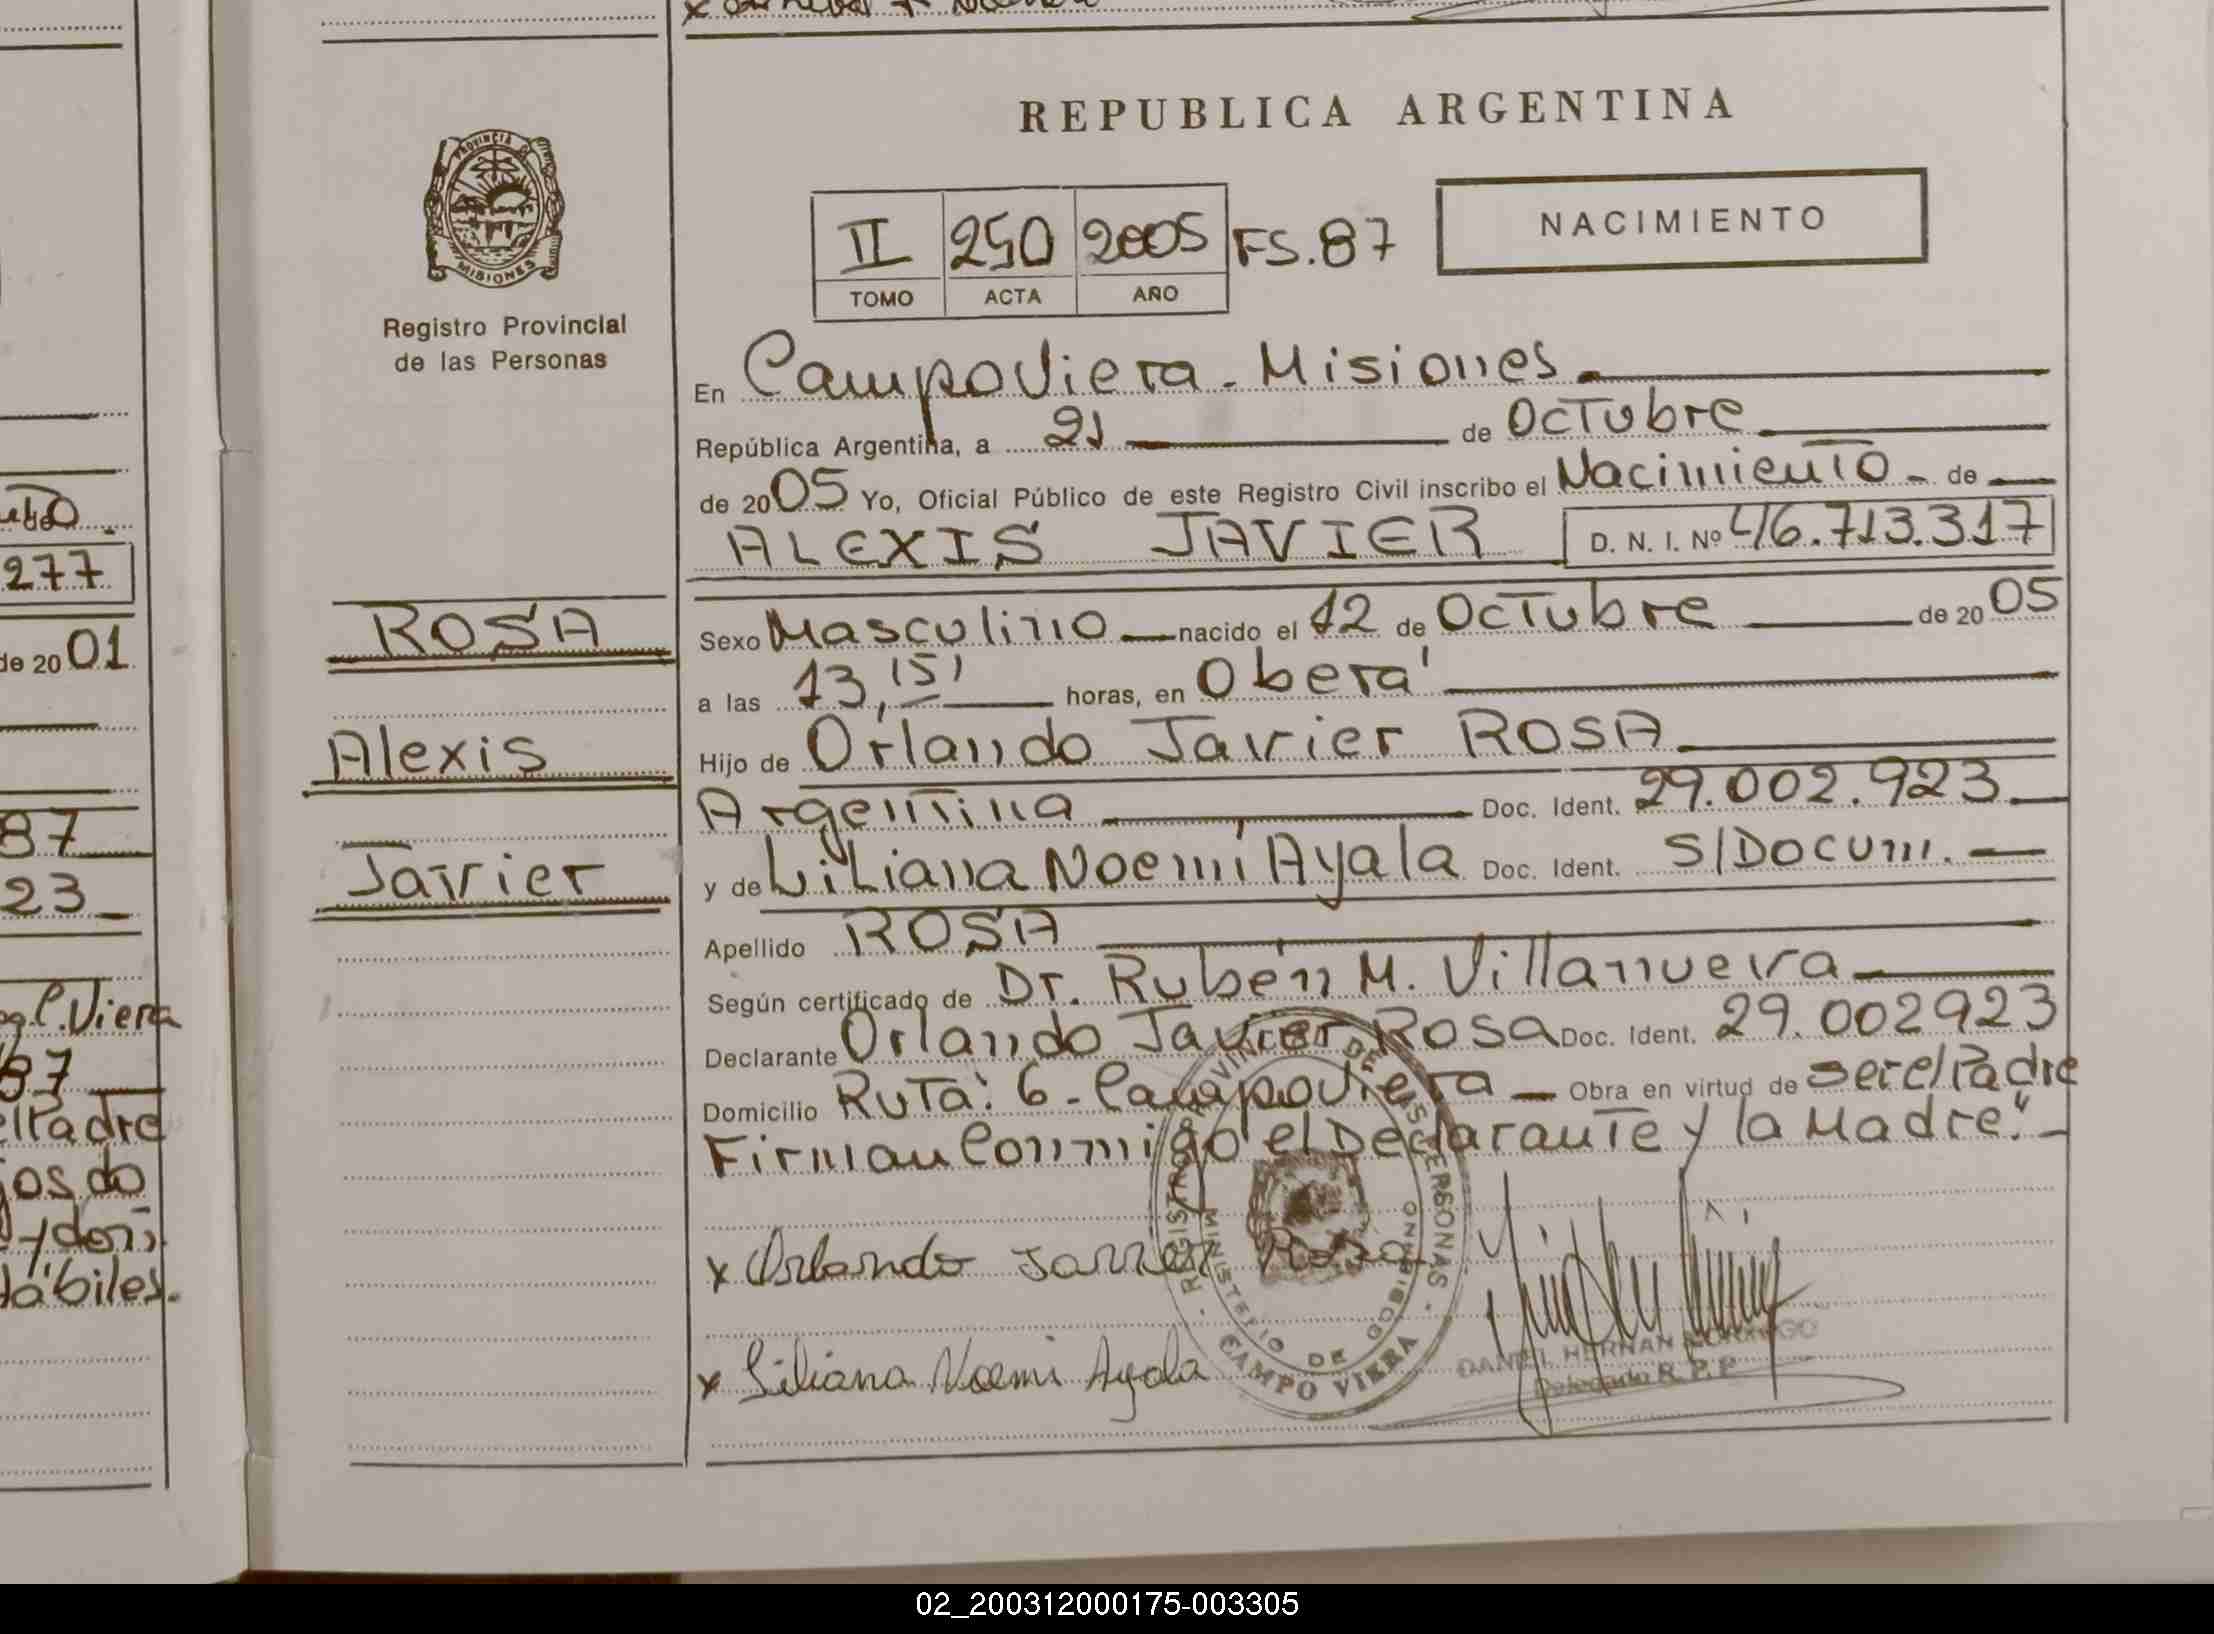 REPUBLICA ARGENTINA
PROVINCIA DE
MISIONES
Registro Provincial
de las Personas
II 250 2005 FS.87
TOMO ACTA AÑO
NACIMIENTO
En Campo Viera - Misiones
República Argentina, a 21 de Octubre
de 2005 Yo, Oficial Público de este Registro Civil inscribo el Nacimiento - de
ALEXIS JAVIER D. N. I. Nº 46.713.317
ROSA
Alexis
Javier
Sexo Masculino nacido el 12 de Octubre de 2005
a las 13,15' horas, en Oberá
Hijo de Orlando Javier ROSA
Argentina Doc. Ident. 29.002.923
y de Liliana Noemí Ayala Doc. Ident. S/Docum.
Apellido ROSA
Según certificado de Dr. Rubén M. Villanueva
Declarante Orlando Javier Rosa Doc. Ident. 29.002923
Domicilio Ruta: 6 - Campo Viera Obra en virtud de ser el Padre
Firman Conmigo el Declarante y la Madre."-
x Orlando Javier Rosa
x Liliana Noemi Ayala
MINISTERIO DE GOBIERNO
CAMPO VIERA
DANIEL HERNAN
Delegado R. P. P.
277
de 20 01
87
23
C. Viera
87
el Padre
y dom
hábiles.
02_200312000175-003305